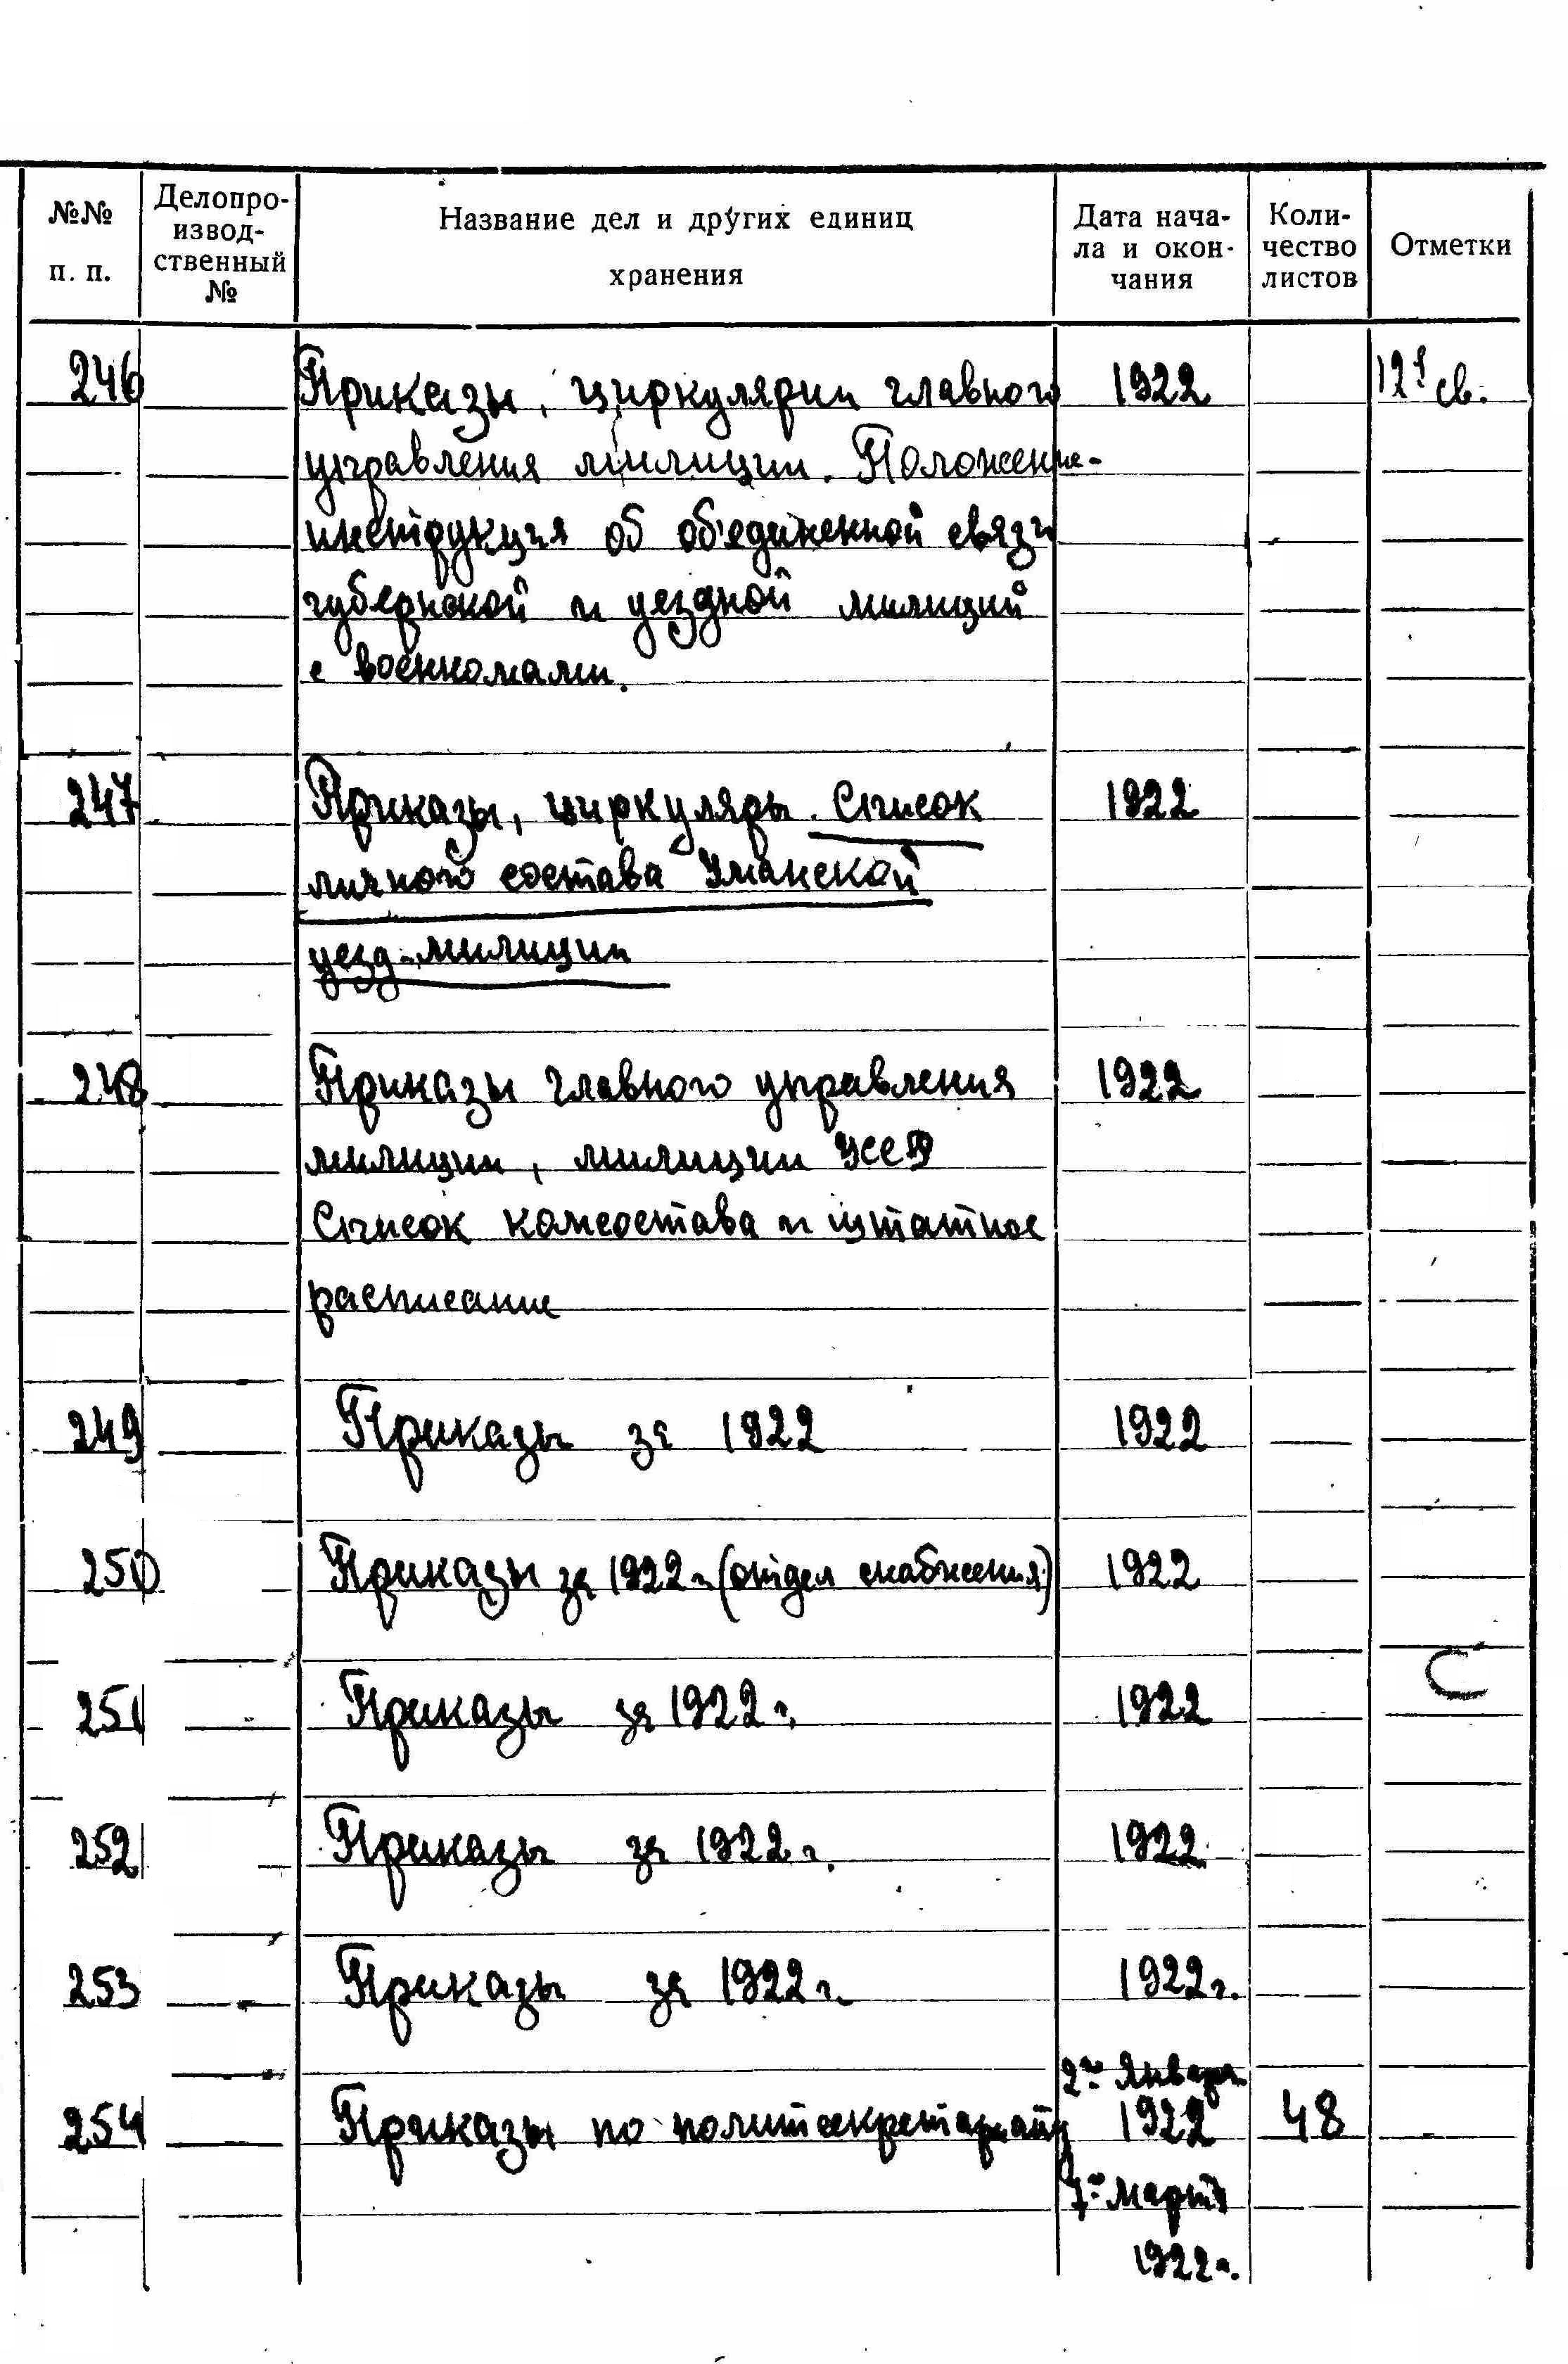 №№ п. п.
Делопро-
извод-
ственный
№
Название дел и других единиц
хранения
Дата нача-
ла и окон-
чания
Коли-
чество
листов
Отметки
246 Приказы, циркулярии главного 1922 св.
управления милиции. Положение-
инструкция об объединенной связи
губернской и уездной милиций
с военкомами.
247 Приказы, циркуляры. Список 1922
личного состава Уманской
уезд-милиции
248 Приказы главного управления 1922
милиции, милиции
Список комсостава и штатное
расписание
249 Приказы за 1922 1922
250 Приказы за 1922 г (отдел снабжения) 1922
251 Приказы за 1922 г. 1922
252 Приказы за 1922 г. 1922
253 Приказы за 1922 г. 1922 г.
2го Января
254 Приказы по политсекретариату 1922 48
7го Марта
1922 г.